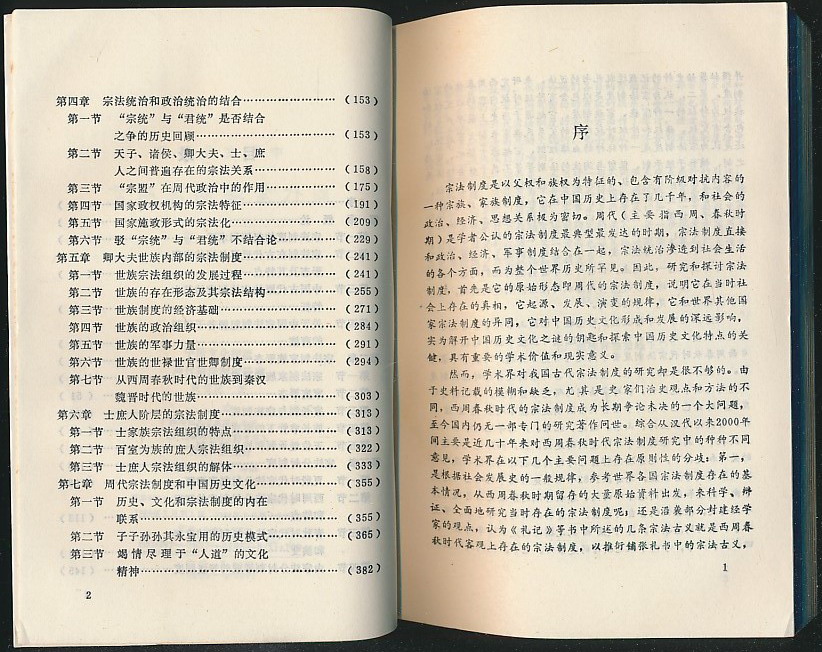 第四章　宗法统治和政治统治的结合……………………（153）
第一节　“宗统”与“君统”是否结合
之争的历史回顾……………………（153）
第二节　天子、诸侯、卿大夫、士、庶
人之间普遍存在的宗法关系……………………（158）
第三节　“宗盟”在周代政治中的作用……………………（175）
第四节　国家政权机构的宗法特征……………………（191）
第五节　国家施政形式的宗法化……………………（209）
第六节　驳“宗统”与“君统”不结合论……………………（229）
第五章　卿大夫世族内部的宗法制度……………………（241）
第一节　世族宗法组织的发展过程……………………（241）
第二节　世族的存在形态及其宗法结构……………………（255）
第三节　世族制度的经济基础……………………（271）
第四节　世族的政治组织……………………（284）
第五节　世族的军事力量……………………（291）
第六节　世族的世禄世官世卿制度……………………（294）
第七节　从西周春秋时代的世族到秦汉
魏晋时代的世族……………………（303）
第六章　士庶人阶层的宗法制度……………………（313）
第一节　士家族宗法组织的特点……………………（313）
第二节　百室为族的庶人宗法组织……………………（322）
第三节　士庶人宗法组织的解体……………………（333）
第七章　周代宗法制度和中国历史文化……………………（355）
第一节　历史、文化和宗法制度的内在
联系……………………（355）
第二节　子子孙孙其永宝用的历史模式……………………（365）
第三节　竭情尽理于“人道”的文化
精神……………………（382）
2
序
宗法制度是以父权和族权为特征的、包含有阶级对抗内容的
一种宗族、家族制度，它在中国历史上存在了几千年，和社会的
政治、经济、思想关系极为密切。周代（主要指西周、春秋时
期）是学者公认的宗法制度最典型最发达的时期，宗法制度直接
和政治、经济、军事制度结合在一起，宗法统治渗透到社会生活
的各个方面，而为整个世界历史所罕见。因此，研究和探讨宗法
制度，首先是它的原始形态即周代的宗法制度，说明它在当时社
会上存在的真相，它起源、发展、演变的规律，它和世界其他国
家宗法制度的异同，它对中国历史文化形成和发展的深远影响，
实为解开中国历史文化之谜的钥匙和探索中国历史文化特点的关
键，具有重要的学术价值和现实意义。
然而，学术界对我国古代宗法制度的研究却是很不够的。由
于史料记载的模糊和缺乏，尤其是史家们治史观点和方法的不
同，西周春秋时代的宗法制度成为长期争论未决的一个大问题，
至今国内仍无一部专门的研究著作问世。综合从汉代以来2000年
间主要是近几十年来对西周春秋时代宗法制度研究中的种种不同
意见，学术界在以下几个主要问题上存在原则性的分歧：第一，
是根据社会发展史的一般规律，参考世界各国宗法制度存在的基
本情况，从西周春秋时期留存的大量原始资料出发，来科学、辩
证、全面地研究当时存在的宗法制度呢；还是沿袭部分封建经学
家的观点，认为《礼记》等书中所述的几条宗法古义就是西周春
秋时代客观上存在的宗法制度，以推衍铺张礼书中的宗法古义，
1